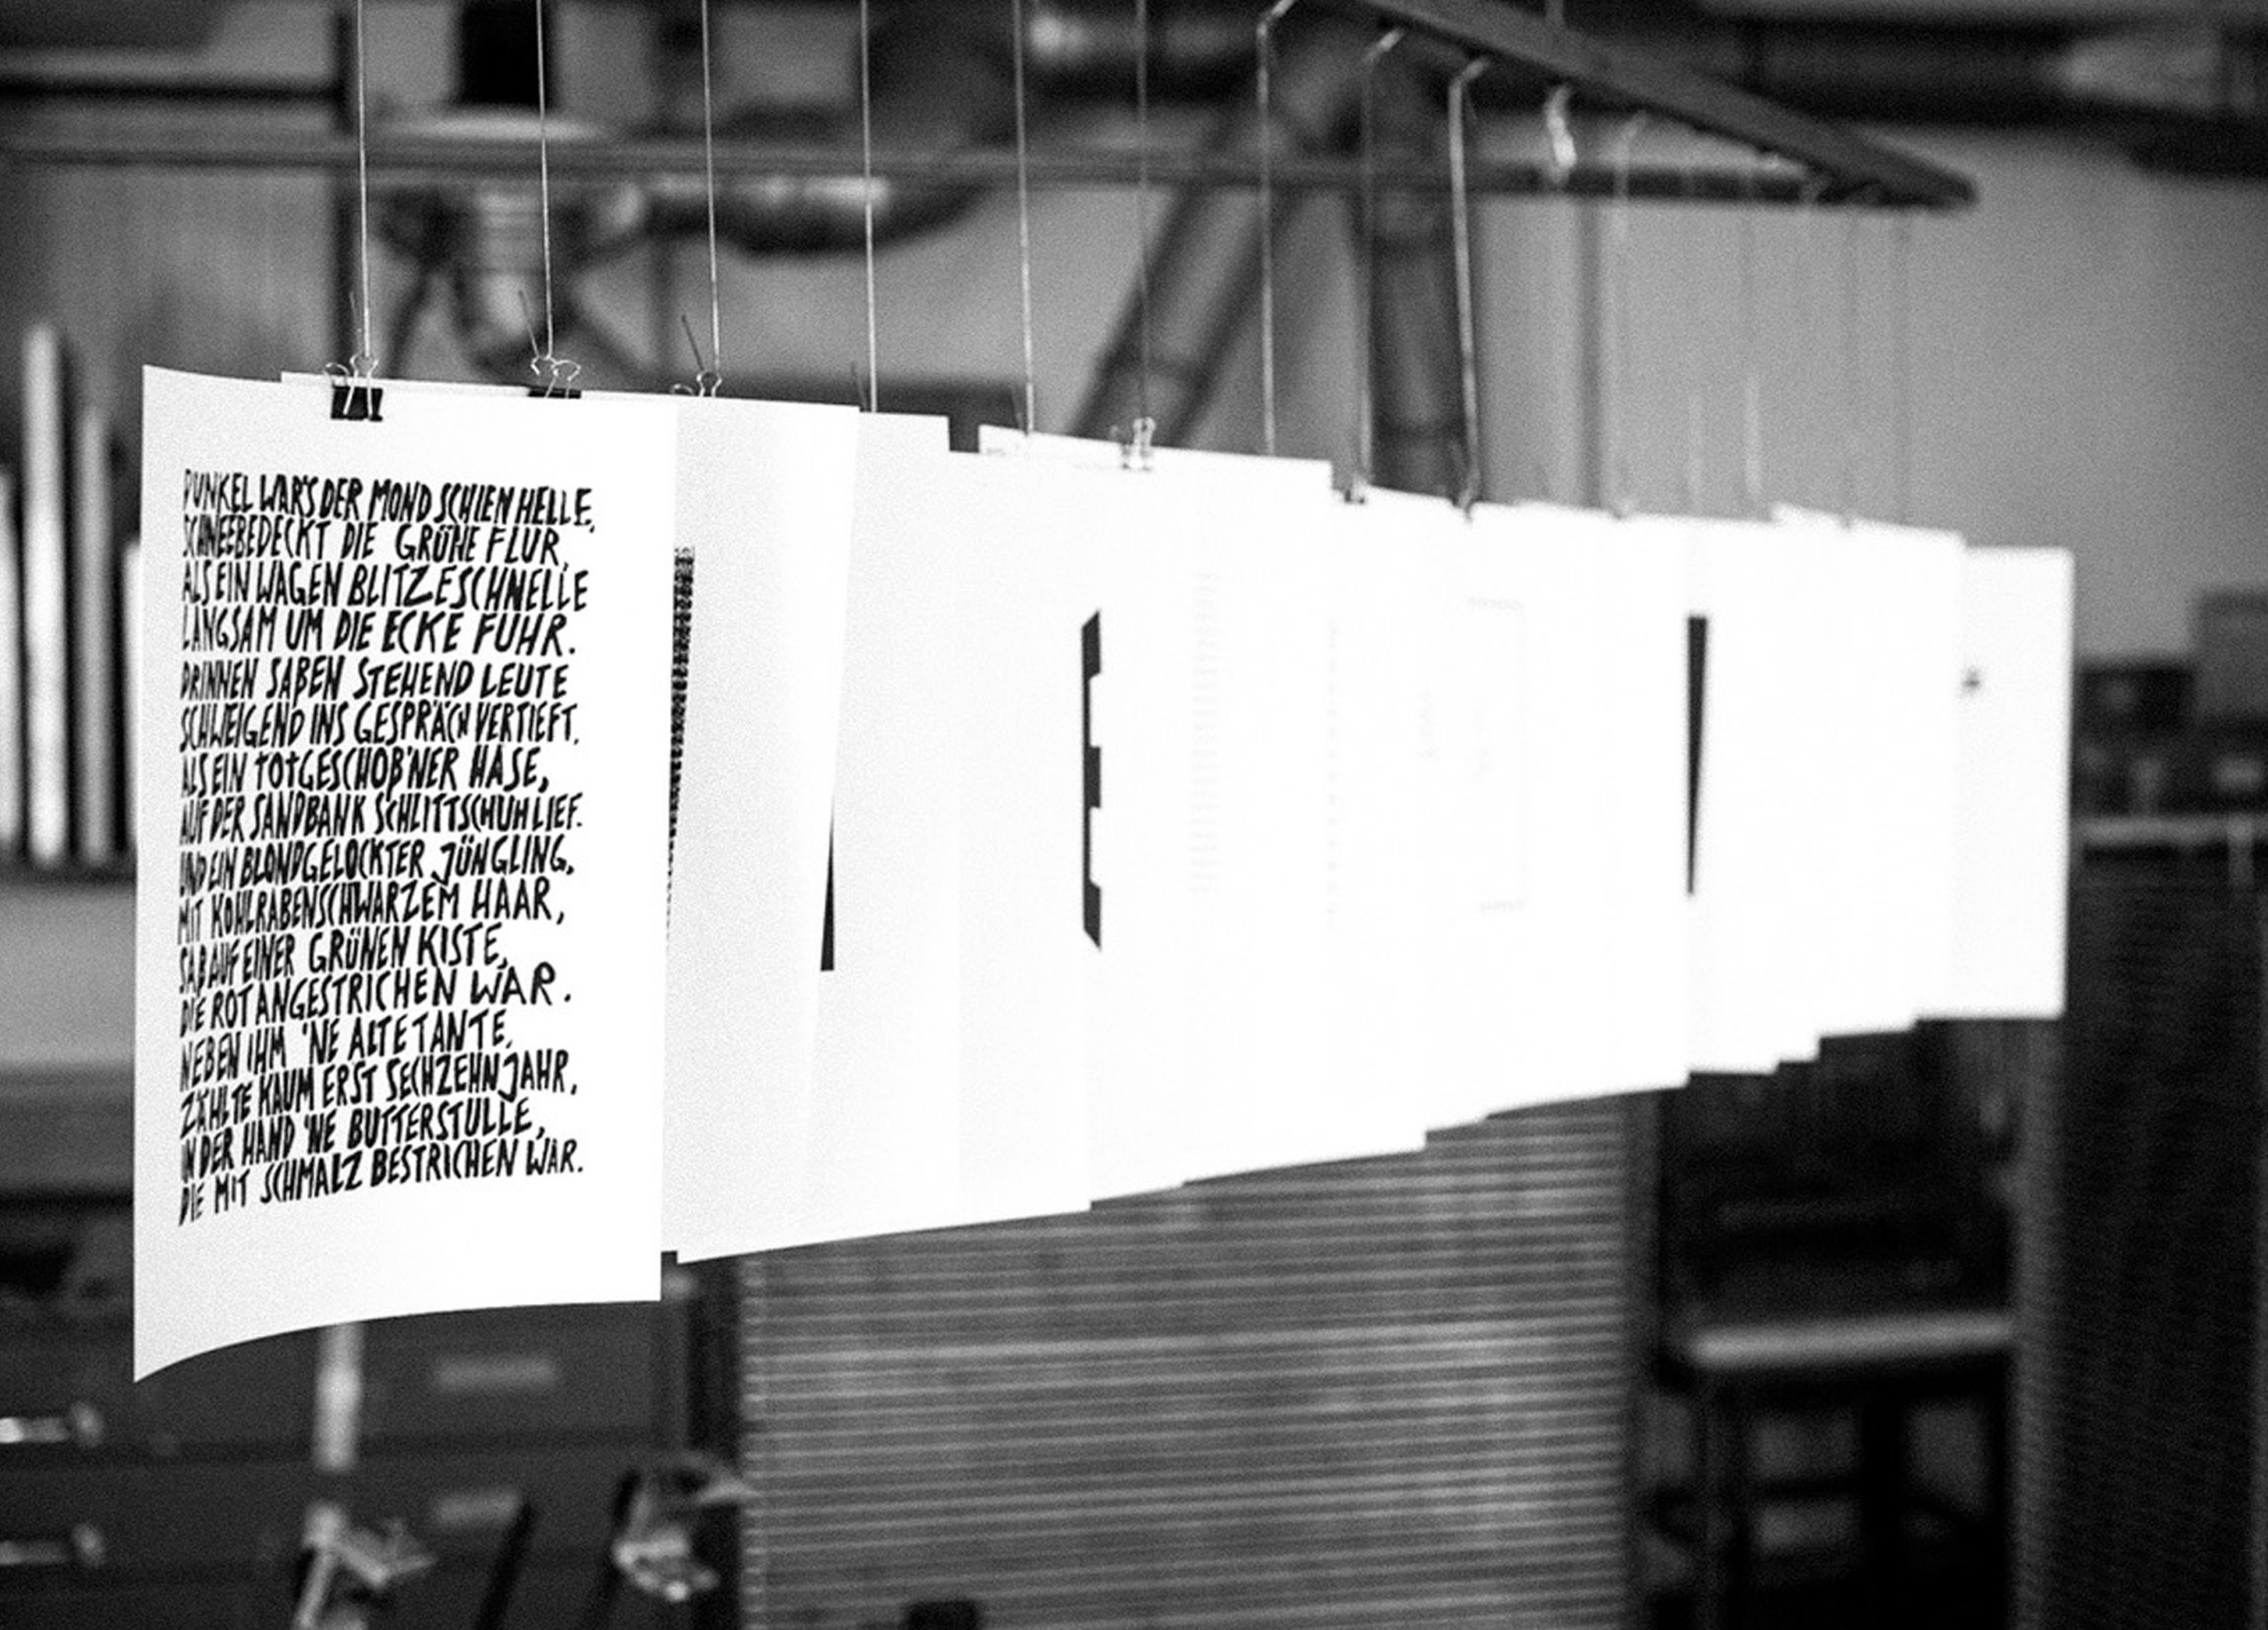 DUNKEL WAR'S DER MOND SCHIEN HELLE,
SCHNEEBEDECKT DIE GRÜNE FLUR,
ALS EIN WAGEN BLITZESCHNELLE
LANGSAM UM DIE ECKE FUHR.
DRINNEN SAßEN STEHEND LEUTE
SCHWEIGEND INS GESPRÄCH VERTIEFT.
ALS EIN TOTGESCHOß'NER HASE,
AUF DER SANDBANK SCHLITTSCHUH LIEF.
UND EIN BLONDGELOCKTER JÜNGLING,
MIT KOHLRABENSCHWARZEM HAAR,
SAß AUF EINER GRÜNEN KISTE,
DIE ROT ANGESTRICHEN WAR.
NEBEN IHM 'NE ALTE TANTE,
ZÄHLTE KAUM ERST SECHZEHN JAHR,
IN DER HAND 'NE BUTTERSTULLE,
DIE MIT SCHMALZ BESTRICHEN WAR.